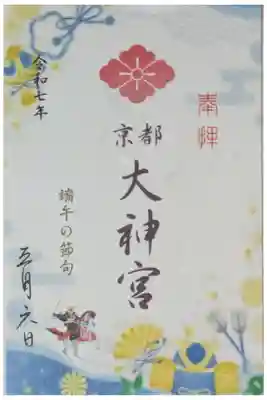 奉拝
京都
大神宮
端午の節句
令和七年
五月六日